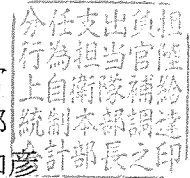 分任支出負担
行為担当官陸
上自衛隊補給
統制本部調達
会計部長之印
彦